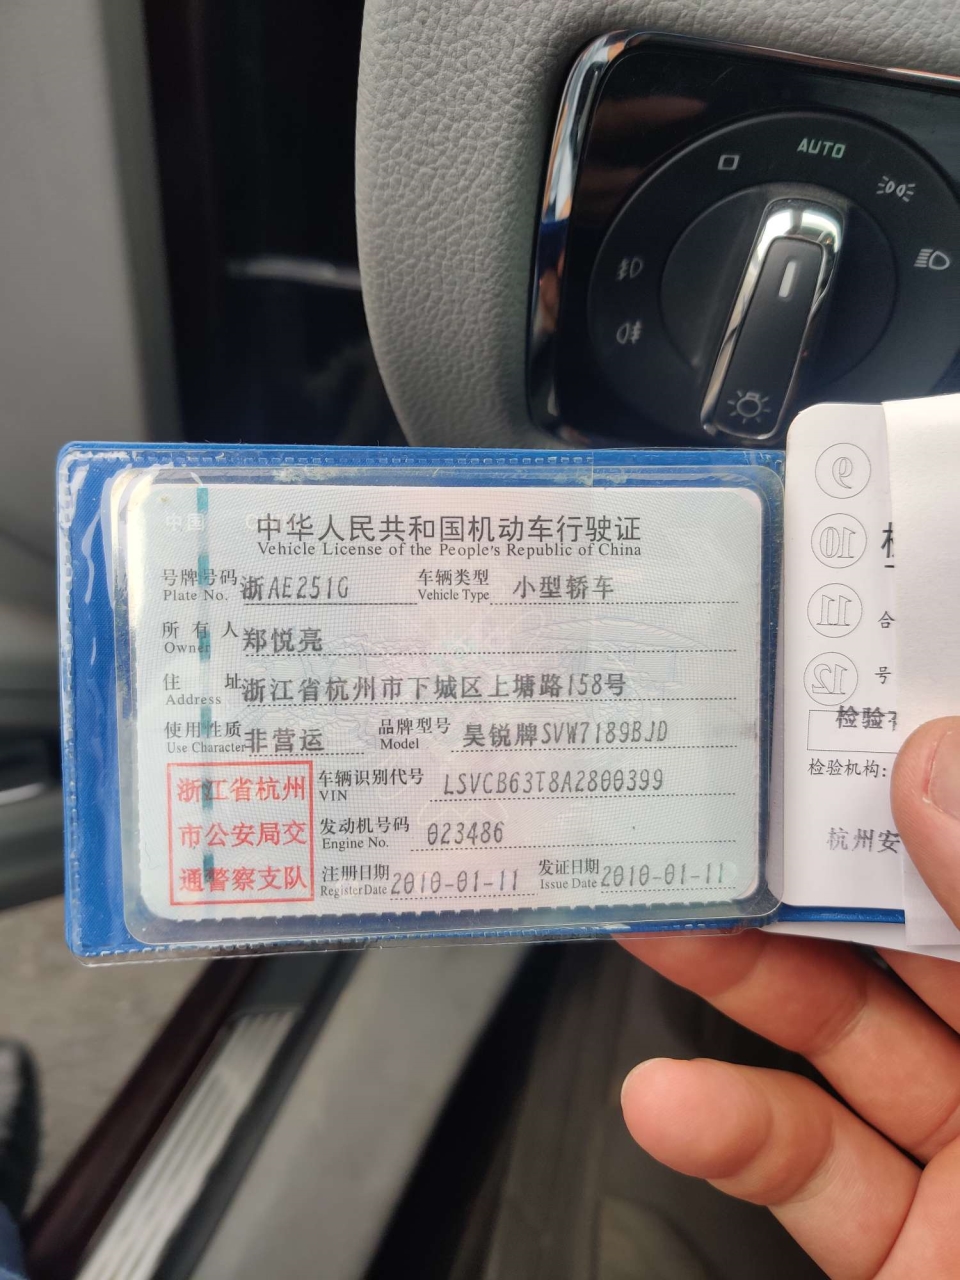 AUTO
中国
中华人民共和国机动车行驶证
Vehicle License of the People's Republic of China
号牌号码 浙AE251G 车辆类型 小型轿车
Plate No. Vehicle Type
所有人 郑悦亮
Owner
住址 浙江省杭州市下城区上塘路158号
Address
使用性质 非营运 品牌型号 昊锐牌SVW7189BJD
Use Character Model
浙江省杭州
市公安局交
通警察支队
车辆识别代号 LSVCB63T8A2800399
VIN
发动机号码 023486
Engine No.
注册日期 2010-01-11 发证日期 2010-01-11
Register Date Issue Date
9
10
11
12
合
号
检验
检验机构:
杭州安